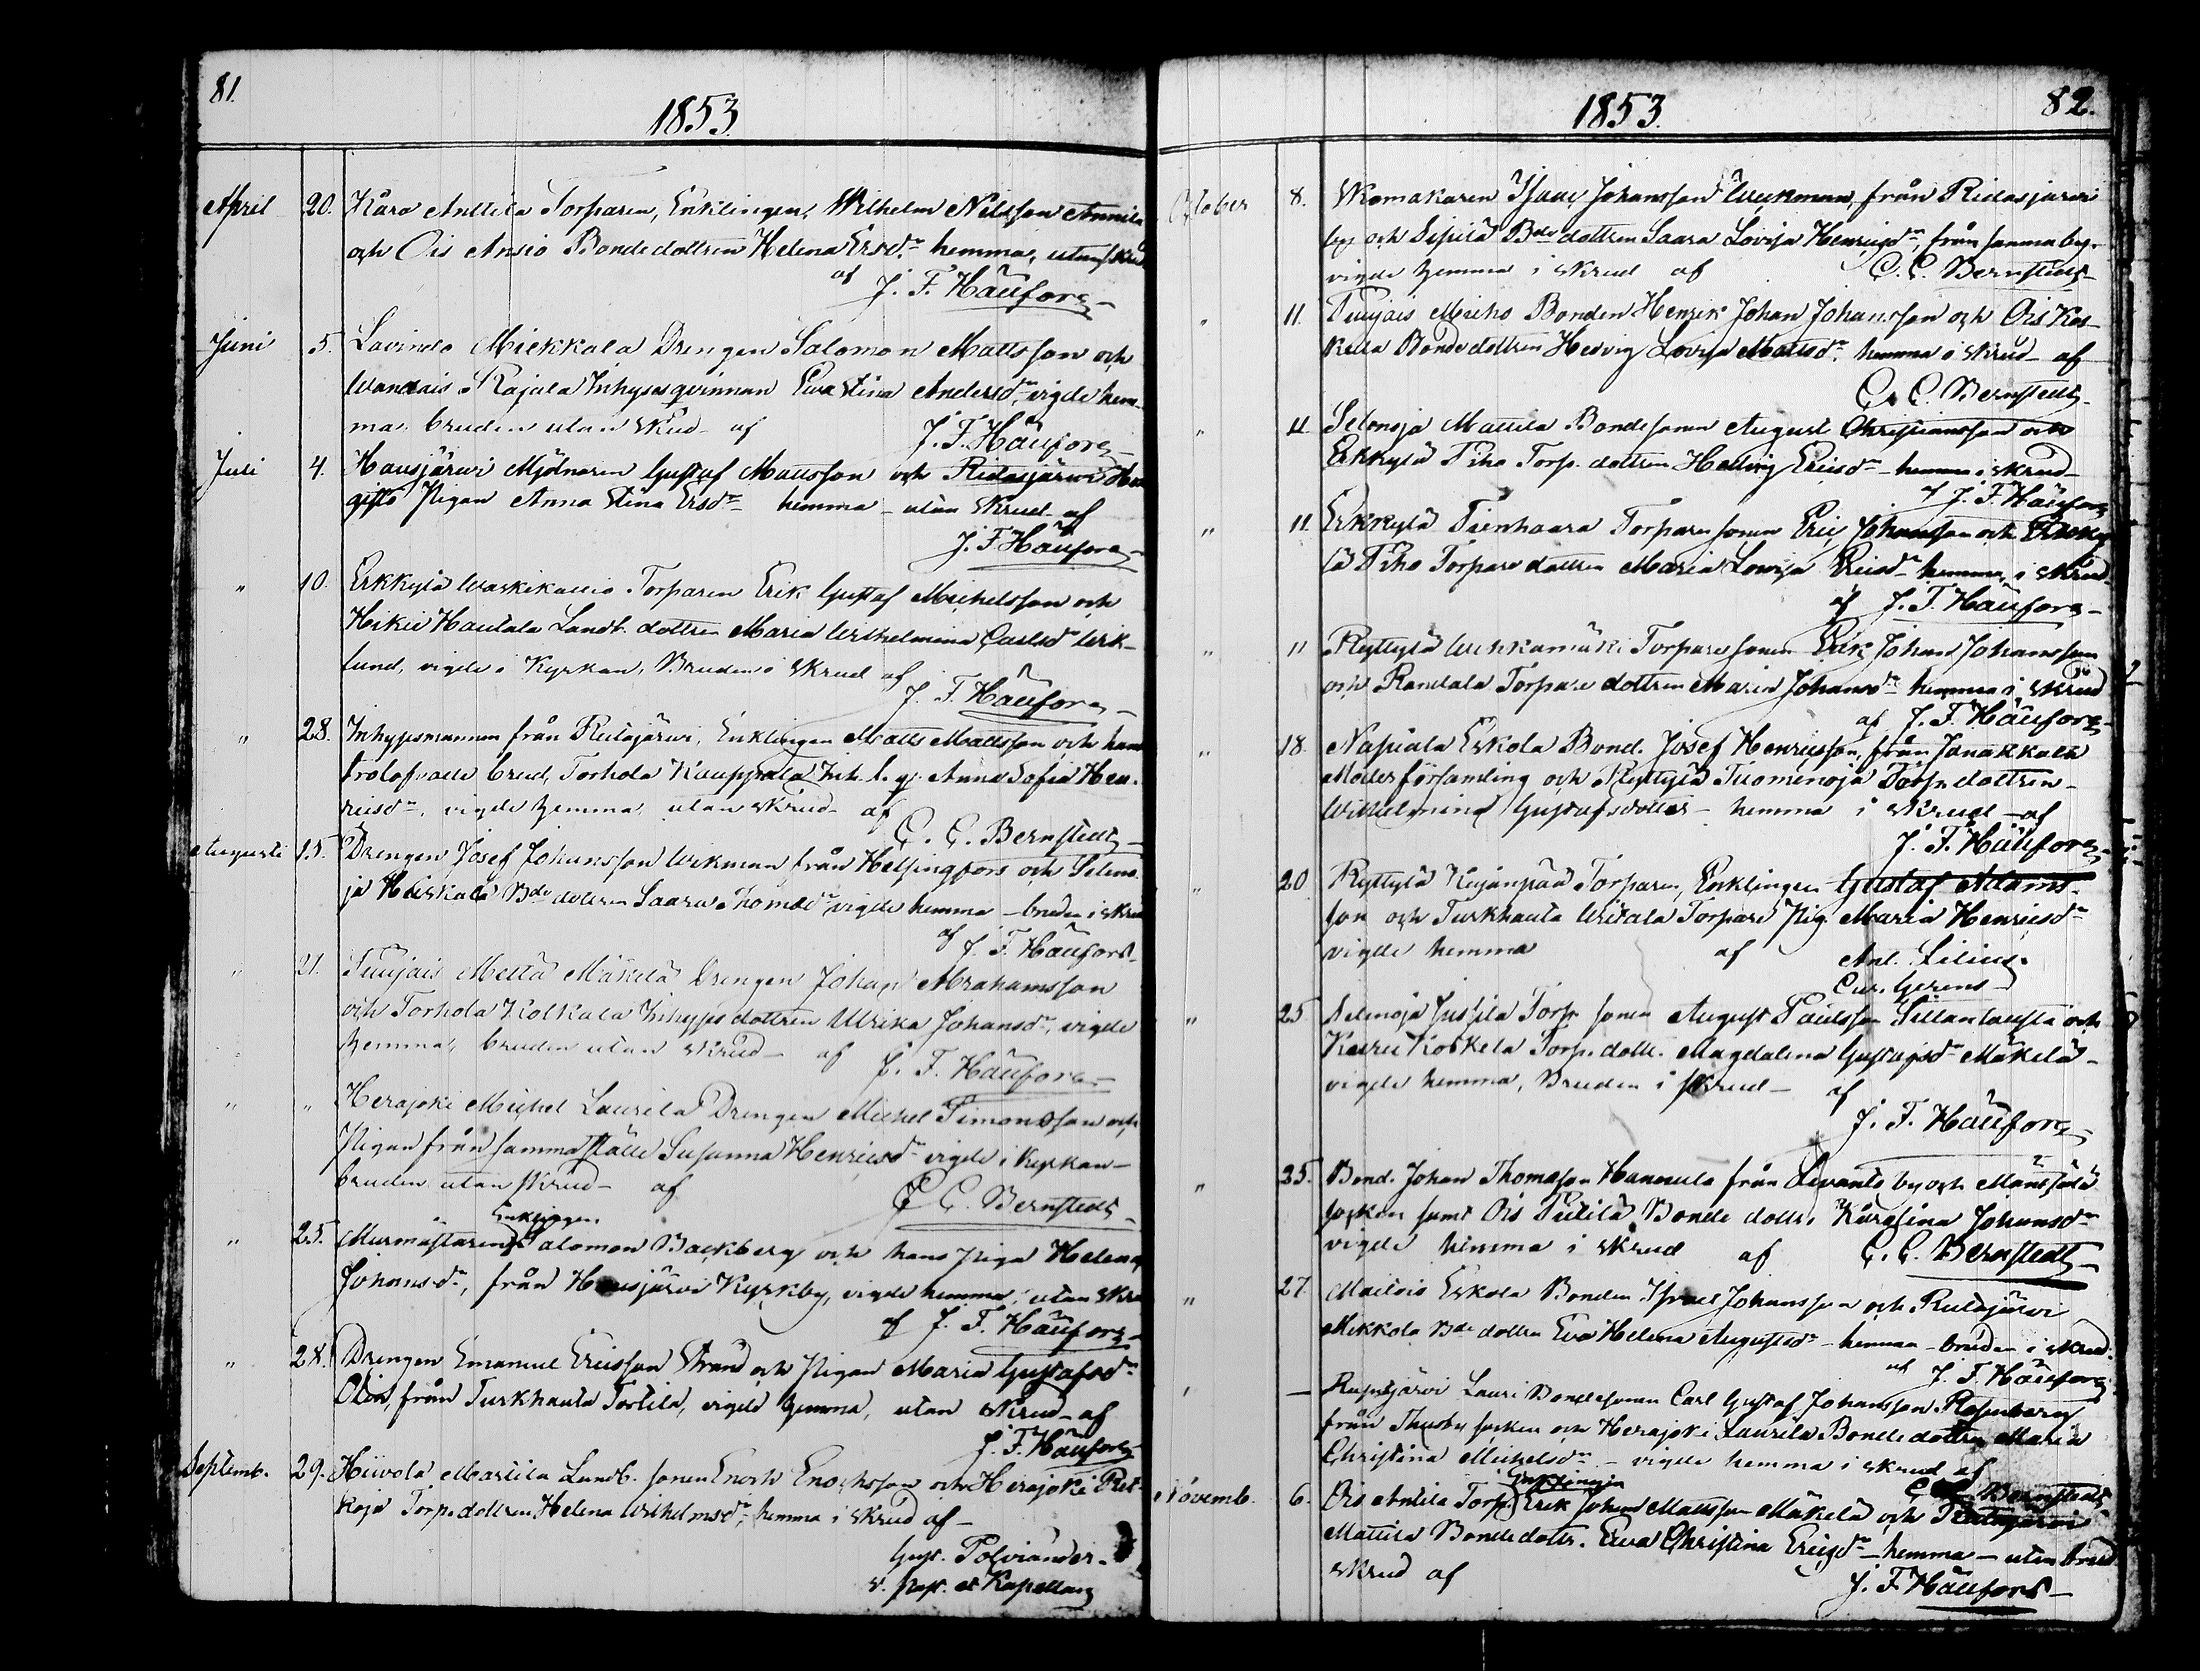 81.
1853
April 20. Kåra Anttila Torparen, Enklingen, Wilhelm Nilsson Annila
och Ois Ansio Bondedottren Helena Ersdr hemma, utan skrud
af J. F. Häufors
Juni 5. Lavindo Miekkala Drengen Salomon Mattsson och
Wandais Rajala Inhyses qvinnan Ewa Stina Andersdr, vigde hem-
ma, bruden utan skrud af J. F. Häufors
Juli 4. Hausjärwi Mjölnaren Gustaf Mattsson och Ridasjärwi
Pigan Anna Stina Ersdr hemma utan skrud af
J. F. Häufors
" 10. Erkkylä Waskikallio Torparen Erik Gustaf Michelsson och
Hikiä Hautala Landb. dottren Maria Wilhelmina Carlsdr Wik-
lund, vigde i Kyrkan, Bruden i skrud af
J. F. Häufors
" 28. Inhysesmannen från Ridasjärwi, Enklingen Matts Mattsson och hans
trolofvade brud, Torhola Kauppala Inh. Anna Sofia Hen-
ricsdr, vigde hemma, utan skrud af
C. C. Bernstedt
Augusti 15. Drengen Josef Johansson Wikman från Helsingfors och Selene-
ja Heiskala Bde dottren Saara Thomædr, vigde hemma bruden i skrud
af J. F. Häufors
" 21. Puujais Mäkelä Drengen Johan Abrahamsson
och Torhola Kolkala Inhyses dottren Ulrika Johansdr, vigde
hemma, bruden utan skrud af J. F. Häufors
" " Herajoki Michel Laurila Drengen Michel Simonsson och
Pigan från samma ställe Susanna Henricsdr vigde i Kyrkan
bruden utan skrud af C. C. Bernstedt
Enklingen
" 25. Murmästaren Salomon Backberg och hans Piga Helena
Johansdr, från Hausjärwi Kyrkby, vigde hemma, utan skrud
af J. F. Häufors
" 28. Drengen Emanuel Ericsson Strand och Pigan Maria Gustafsdr
från Turkhauta Tortila, vigde hemma, utan skrud af
J. F. Häufors
Septemb. 29. Hiivola Martila Landb. sonen Enoch Enochsson och Herajoki
Torp. dottren Helena Wilhelmsdr, hemma i skrud af
Gust. Polviander
v. past. et Kapellan
1853.
82.
October 8. Skomakaren Isaac Johansson från Ridasjärwi
by och Sipilä Bde dottren Saara Lovisa Henricsdr, från samma by,
vigde hemma i skrud af C. C. Bernstedt
" 11. Puujais Bonden Henrik Johan Johansson och Ois Kos-
kela Bondedottren Hedvig Lovisa Mattsdr. hemma i skrud af
C. C. Bernstedt
" 11. Selenoja Mattila Bondesonen August Christiansson och
Erkkylä Piho Torp. dottren Hedvig Ericsdr hemma i skrud
af J. F. Häufors
" 11. Erkkylä Tienhaara Torparesonen Eric Johansson och Erkky
lä Piho Torpare dottren Maria Lovisa Ericsdr hemma, i skrud
af J. F. Häufors
" 11 Ryttylä Torparesonen Erik Johan Johansson
och Torpare dottren Maria Johansdr hemma i skrud
af J. F. Häufors
" 18. Napiala Eskola Bond. Josef Henricsson, från Janakkala
Moderförsamling och Ryttylä Tuomenoja Torp. dottren
Wilhelmina Gustafsdotter hemma i skrud af
J. F. Häufors
" 20 Ryttylä Torparen, Enklingen Gustaf Adams-
son och Turkhauta Torpare Pig. Maria Henricsdr
vigde hemma af And. Lilius.
Cur. Gerens
" 25 Selenoja Torp. sonen August Paulsson Sillanlausta och
Karu Koskela Torp. dottr. Magdalena Gustafsdr Mäkelä
vigde hemma, Bruden i skrud af
J. F. Häufors
" 25. Bond. Johan Thomasson Hannula från Levanto by och Mäntsälä
socken samt Ois Bonde dottr. Karolina Johansdr
vigde hemma i skrud af C. C. Bernstedt
" 27. Eskola Bonden Israel Johansson och Ridasjärwi
Mikkola Bde dottren Eva Helena Augustsdr hemma bruden i skrud
af J. F. Häufors
" — Lauri Bondesonen Carl Gustaf Johansson Rosenberg
från Thusby socken och Herajoki Laurila Bondedottren Maria
Christina Michelsdr vigde hemma i skrud af
C. C. Bernstedt
Enklingen
Novemb. 6. Ois Anttila Torp. Erik Johan Mattsson Mäkelä och Ridasjärwi
Mattila Bondedottr. Eva Christina Ericsdr hemma utan brud
skrud af J. F. Häufors